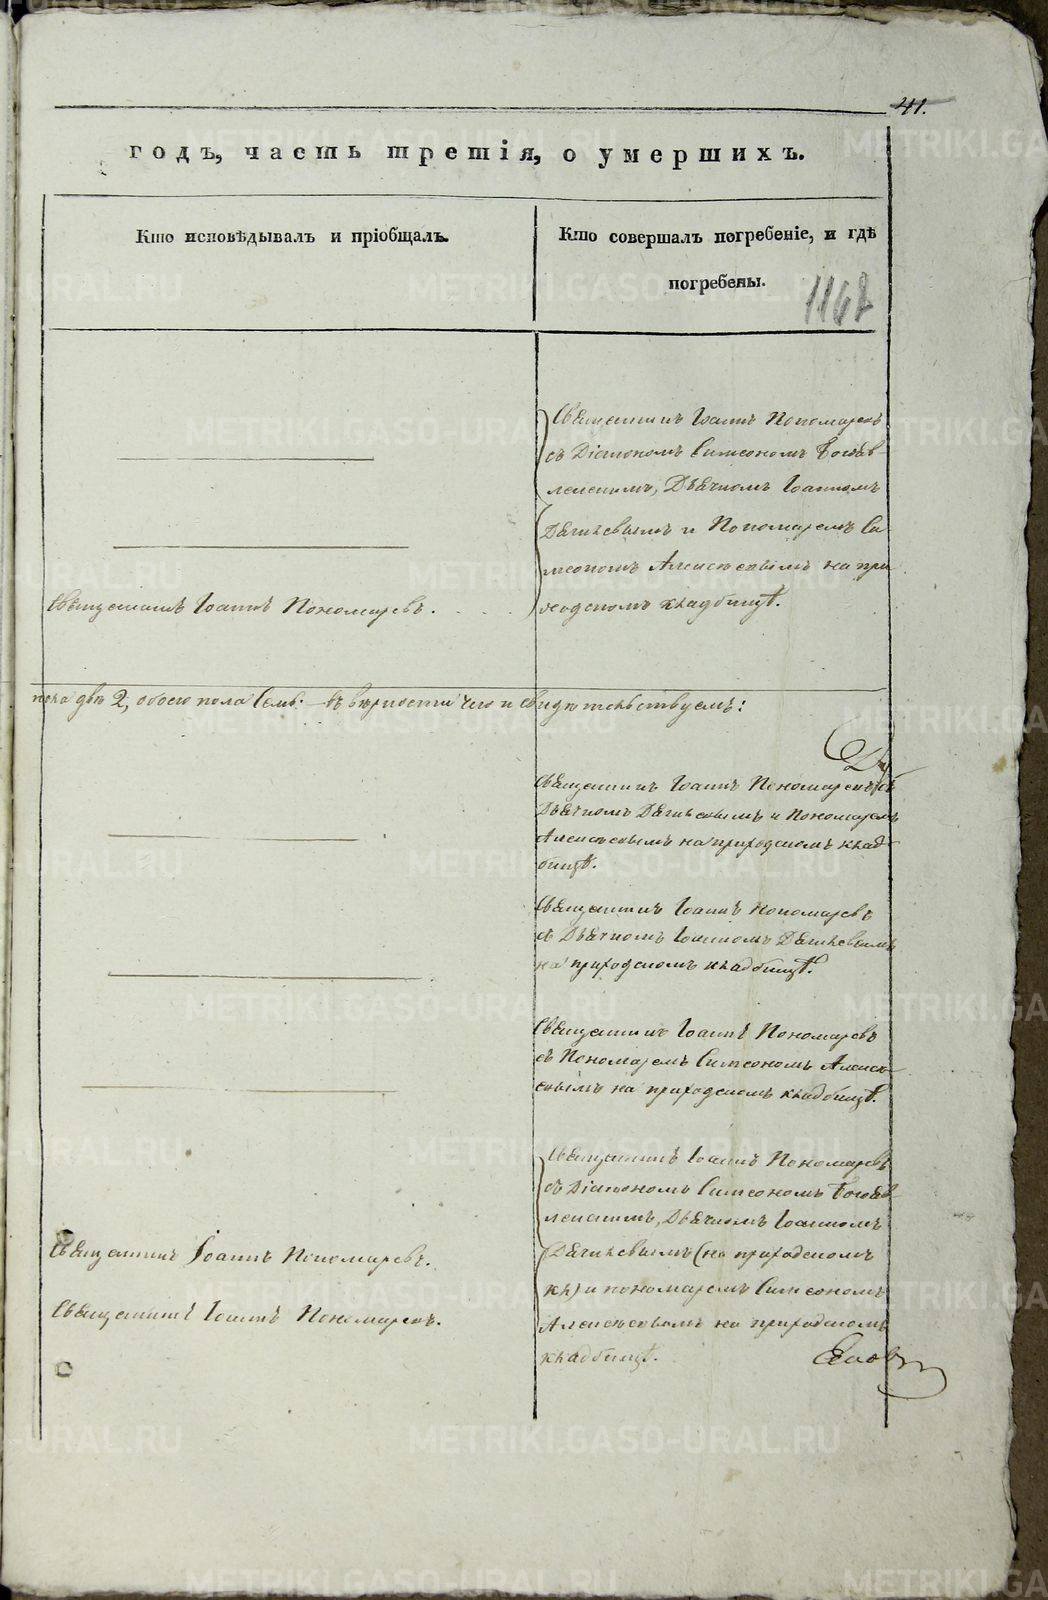 41.
годъ, часть третія, о умершихъ.
Кто исповѣдывалъ и пріобщалъ.
Кто совершалъ погребеніе, и гдѣ
погребены.
1162
Священникъ Іоаннъ Пономаревъ
съ Діакономъ Симеономъ Богояв-
ленскимъ, Дьячкомъ Іоанномъ
и Пономаремъ Си-
меономъ Алексѣевымъ на при
ходскомъ кладбищѣ.
Священникъ Іоаннъ Пономаревъ.
два 2, обоего пола Семь. въ вѣрности чего и свидѣтельствуемъ:
Священникъ Іоаннъ Пономаревъ съ
Дьячкомъ и Пономаремъ
Алексѣевымъ на приходскомъ клад-
бищѣ.
Священникъ Іоаннъ Пономаревъ
съ Дьячкомъ Іоанномъ
на приходскомъ кладбищѣ.
Священникъ Іоаннъ Пономаревъ
съ Пономаремъ Симеономъ Алексѣ-
евымъ на приходскомъ кладбищѣ.
Священникъ Іоаннъ Пономаревъ
съ Діакономъ Симеономъ Богояв-
ленскимъ, Дьячкомъ Іоанномъ
(на приходскомъ
кл) и пономаремъ Симеономъ
Алексѣевымъ на приходскомъ
кладбищѣ.
Священникъ Іоаннъ Пономаревъ.
Священникъ Іоаннъ Пономаревъ.
METRIKI.GASO-URAL.RU